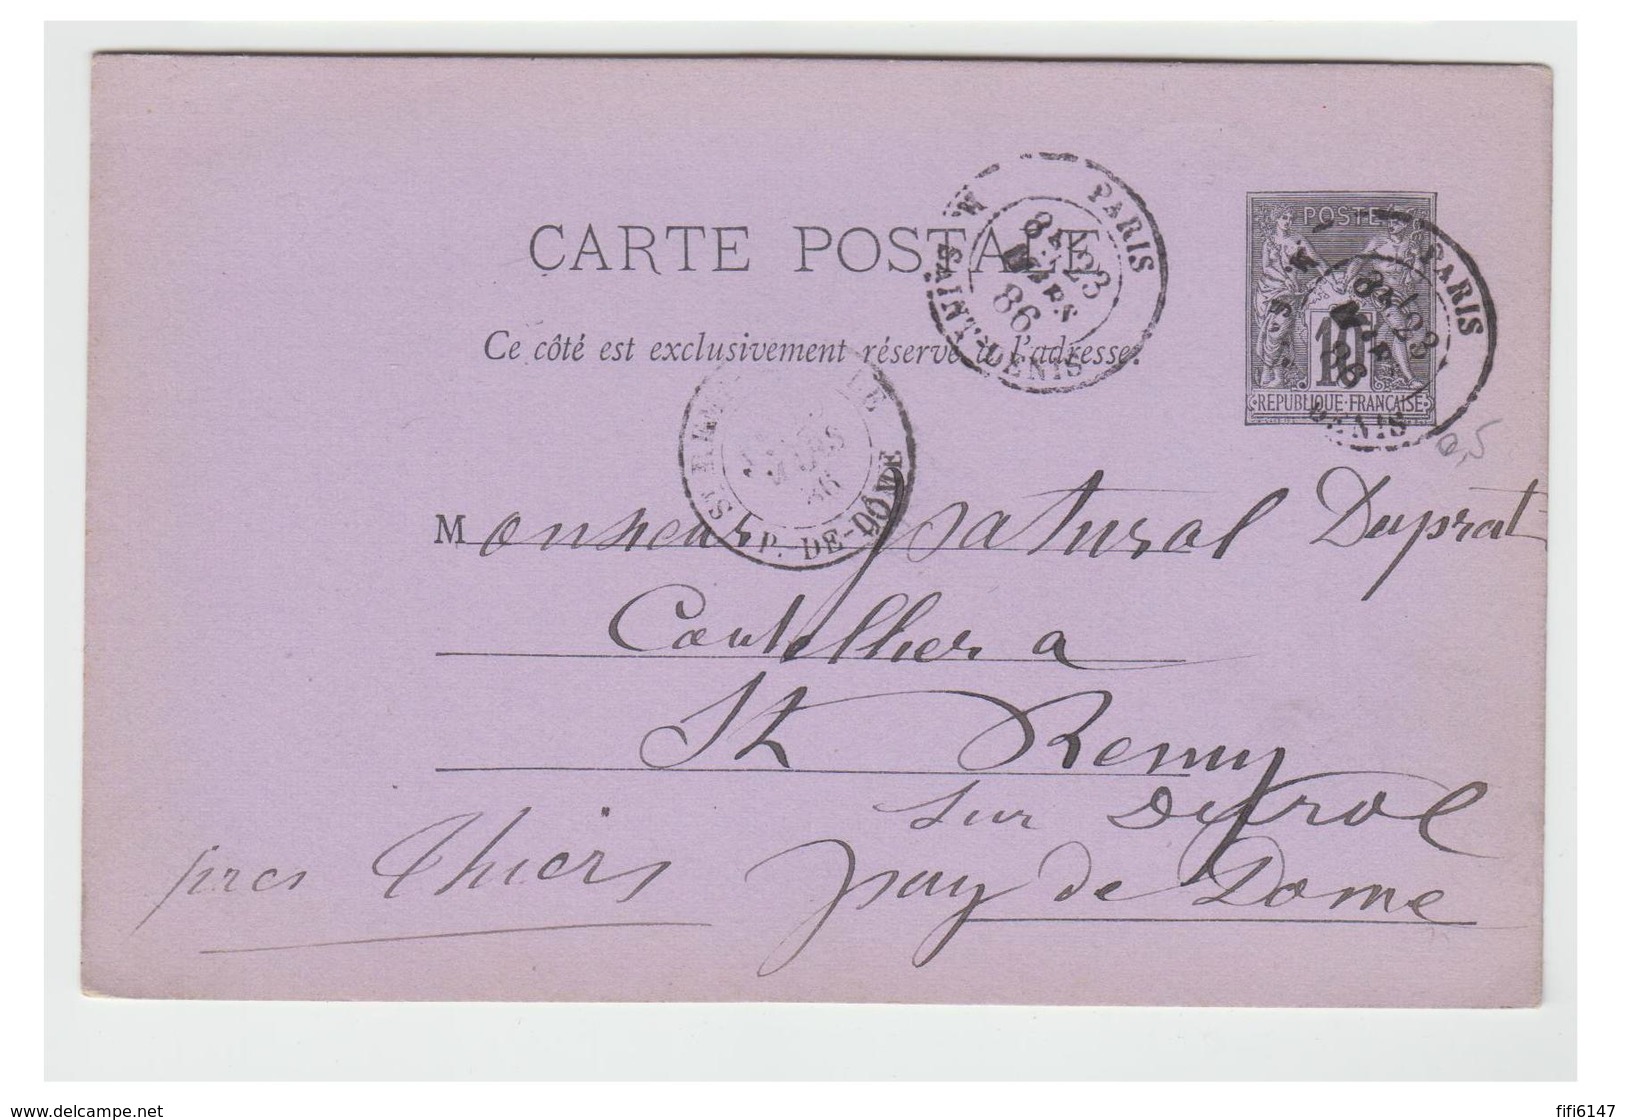 CARTE POSTALE
Ce côté est exclusivement réservé à l'adresse.
POSTE
10
RÉPUBLIQUE FRANÇAISE
PARIS
23
MARS
86
ST-DENIS
PARIS
23
MARS
86
SAINT-DENIS
ST REMY
MARS
86
P. DE-DÔME
0,5
Monsieur Duprat
Coutellier a
St Remy
sur Durole
près Thiers
puy de Dome
www.delcampe.net
fifi6147